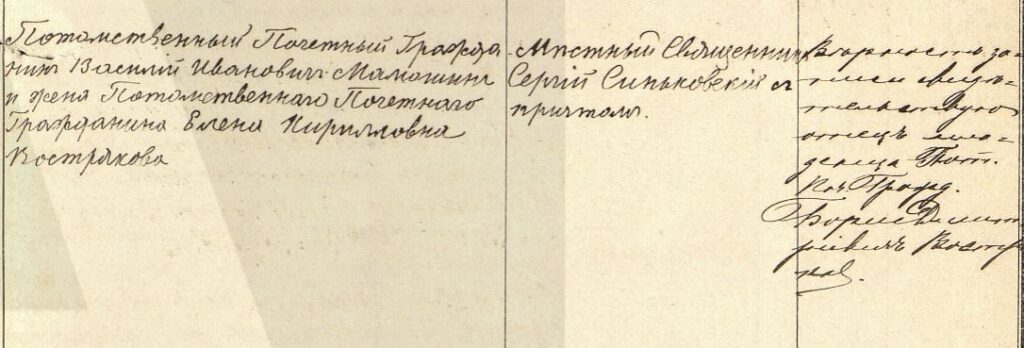 Потомственный Почетный Гражда
нинъ Василій Ивановичъ Мамошинъ
и жена Потомственнаго Почетнаго
Гражданина Елена Кирилловна
Вострякова
Мѣстный Священникъ
Сергій Синьковскій съ
причтомъ.
Вѣрность за-
писи свидѣ-
тельствую
отецъ мла-
денца Пот.
Поч. Гражд.
Борисъ Дмит
ріевичъ Востря
ковъ